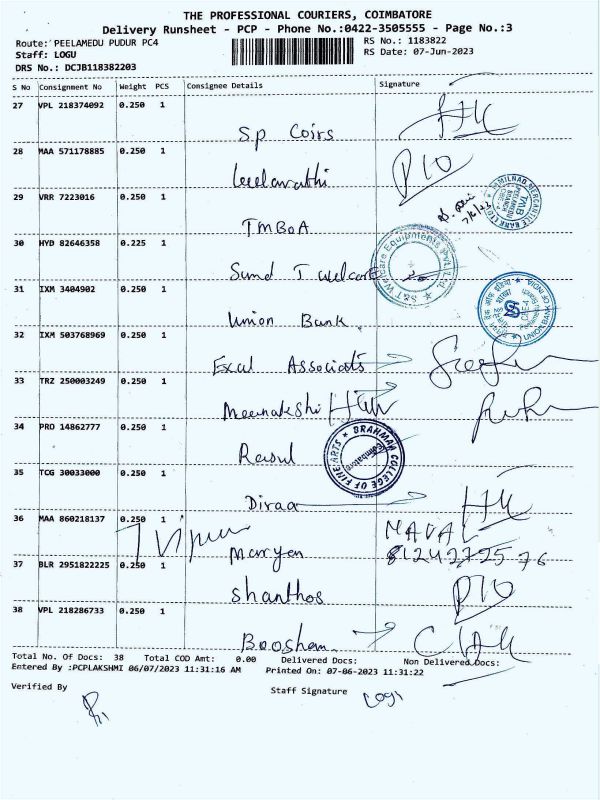 THE PROFESSIONAL COURIERS, COIMBATORE
Delivery Runsheet - PCP - Phone No.:0422-3505555 - Page No.:3
Route: PEELAMEDU PUDUR PC4
RS No.: 1183822
Staff: LOGU
RS Date: 07-Jun-2023
DRS No.: DCJB118382203
S No Consignment No Weight PCS Consignee Details Signature
27 VPL 218374092 0.250 1
S.p Coirs
28 MAA 571178885 0.250 1
Leelavathi P10
29 VRR 7223016 0.250 1
TMB
30 HYD 82646358 0.225 1
S&T Welcare Equipments Pvt. Ltd.
31 IXM 3404902 0.250 1
Union Bank
UNION BANK OF INDIA
32 IXM 503768969 0.250 1
Excal Associats
33 TRZ 250003249 0.250 1
Meenakshi
34 PRO 14862777 0.250 1
Rasul
BRAHMAH COLLEGE OF FINE ARTS
Coimbatore
35 TCG 30033000 0.250 1
Diraa
36 MAA 860218137 0.250 1
Maryen
NAVAL
37 BLR 2951822225 0.250 1
Shanthos P10
38 VPL 218286733 0.250 1
Booshan
Total No. Of Docs: 38 Total COD Amt: 0.00 Delivered Docs: Non Delivered Docs:
Entered By :PCPLAKSHMI 06/07/2023 11:31:16 AM Printed On: 07-06-2023 11:31:22
Verified By
Staff Signature Logi